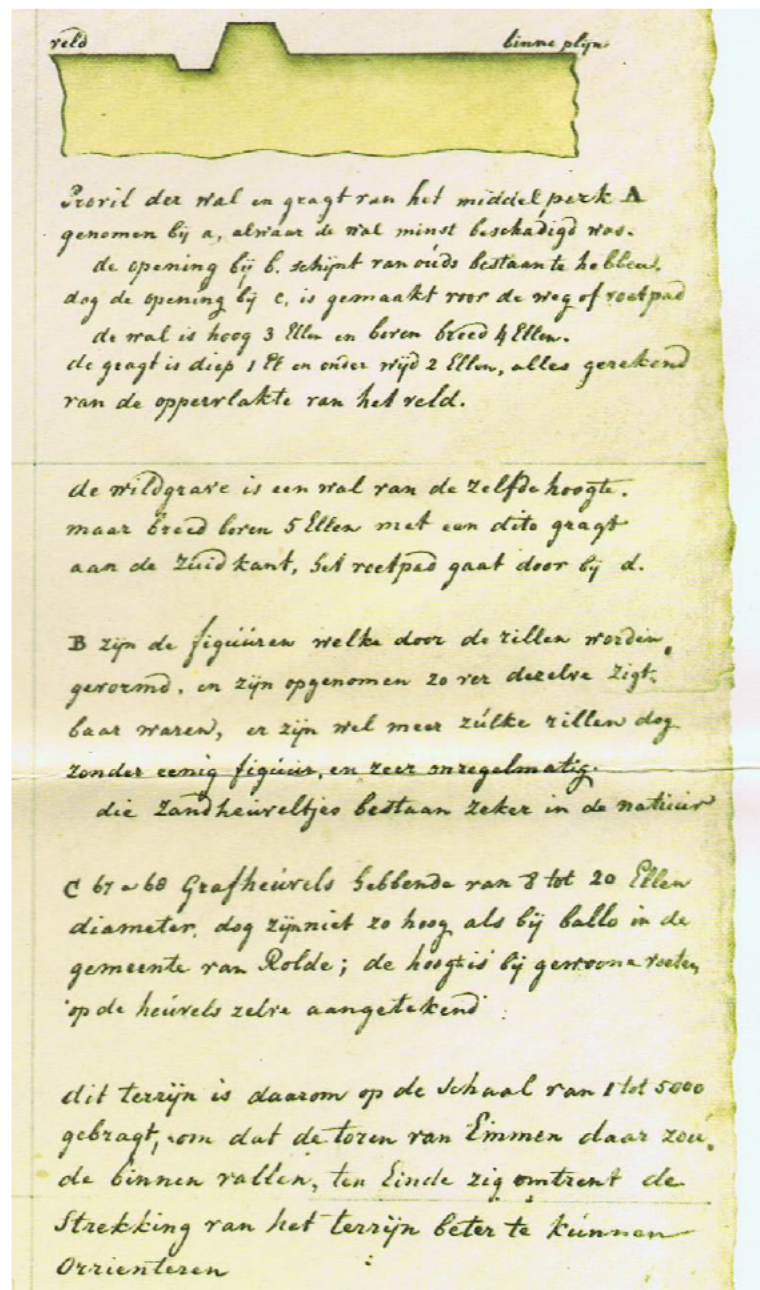 veld binne plijn
Provil der wal en gragt van het middelperk A
genomen bij a, alwaar de wal minst beschadigd was.
de opening bij b. schijnt van oúds bestaan te hebben.
dog de opening bij c, is gemaakt voor de weg of voetpad
de wal is hoog 3 Ellen en boven breed 4 Ellen.
de gragt is diep 1 El en onder wijd 2 Ellen, alles gerekend
van de oppervlakte van het veld.
de wildgrave is een wal van de zelfde hoogte.
maar breed boven 5 Ellen met een dito gragt
aan de Zúid kant, het voetpad gaat door bij d.
B zijn de figúúren welke door de rillen worden
gevormd, en zijn opgenomen zo ver dezelve Zigt,
baar waren, er zijn wel meer zúlke rillen dog
zonder eenig figúúr, en zeer onregelmatig.
die Zandheúveltjes bestaan zeker in de natúúr
C 67 a 68 Grafheúvels hebbende van 8 tot 20 Ellen
diameter, dog zijn niet zo hoog als bij ballo in de
gemeente van Rolde; de hoogte is bij gewoone voeten,
op de heúvels zelve aangetekend
dit terrijn is daarom op de Schaal van 1 tot 5000
gebragt, om dat de toren van Emmen daar zoú,
de binnen vallen, ten Einde zig omtrent de
Strekking van het terrijn beter te kúnnen
Orrienteren